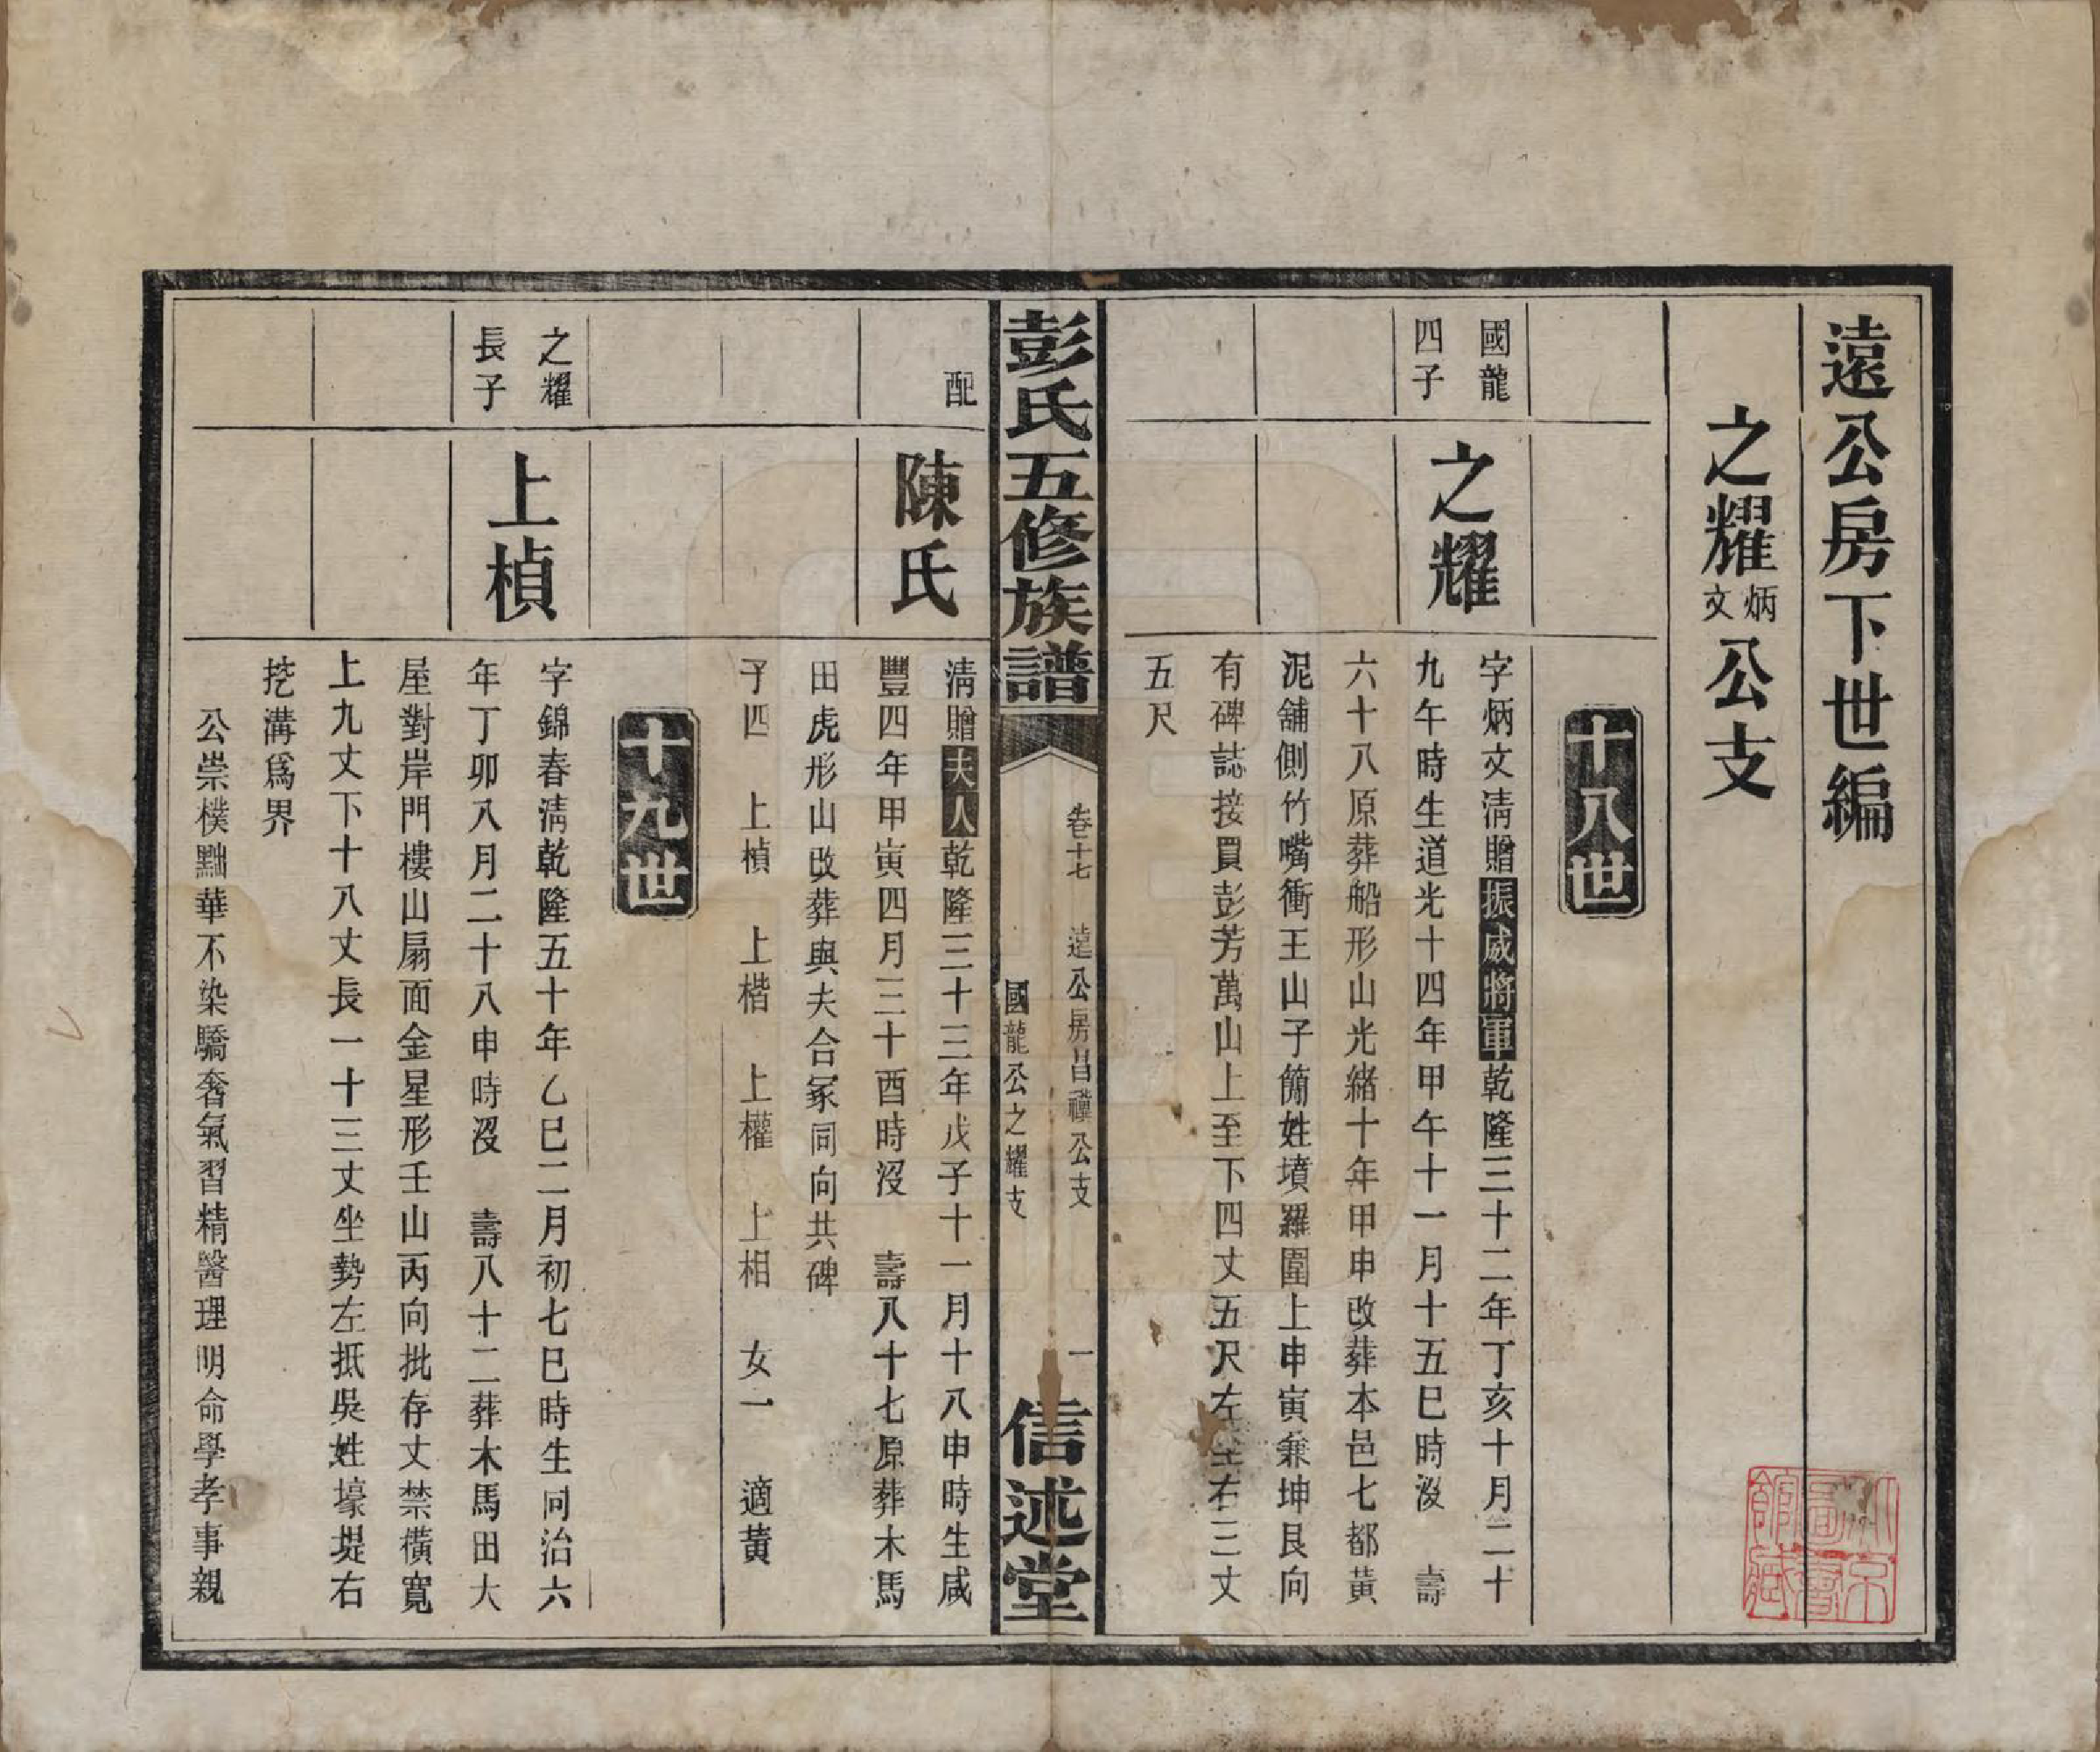 遠公房下世編
之耀炳文公支
十八世
國龍
四子
之耀
字炳文淸贈振威將軍乾隆三十二年丁亥十月二十
九午時生道光十四年甲午十一月十五巳時沒　壽
六十八原葬船形山光緒十年甲申改葬本邑七都黃
泥舖側竹嘴衝王山子簡姓墳羅圍上申寅兼坤艮向
有碑誌接買彭芳萬山上至下四丈五尺左至右三丈
五尺
彭氏五修族譜
卷十七　遠公房昌禩公支
國龍公之耀支
一
信述堂
配
陳氏
淸贈夫人乾隆三十三年戊子十一月十八申時生咸
豐四年甲寅四月三十酉時沒　壽八十七原葬木馬
田虎形山改葬與夫合冢同向共碑
子四　上楨　上楷　上權　上相　女一　適黃
十九世
之耀
長子
上楨
字錦春淸乾隆五十年乙巳二月初七巳時生同治六
年丁卯八月二十八申時沒　壽八十二葬木馬田大
屋對岸門樓山扇面金星形壬山丙向批存丈禁橫寬
上九丈下十八丈長一十三丈坐勢左抵吳姓壕堤右
挖溝爲界
公崇樸黜華不染驕奢氣習精醫理明命學孝事親
北京圖書館藏